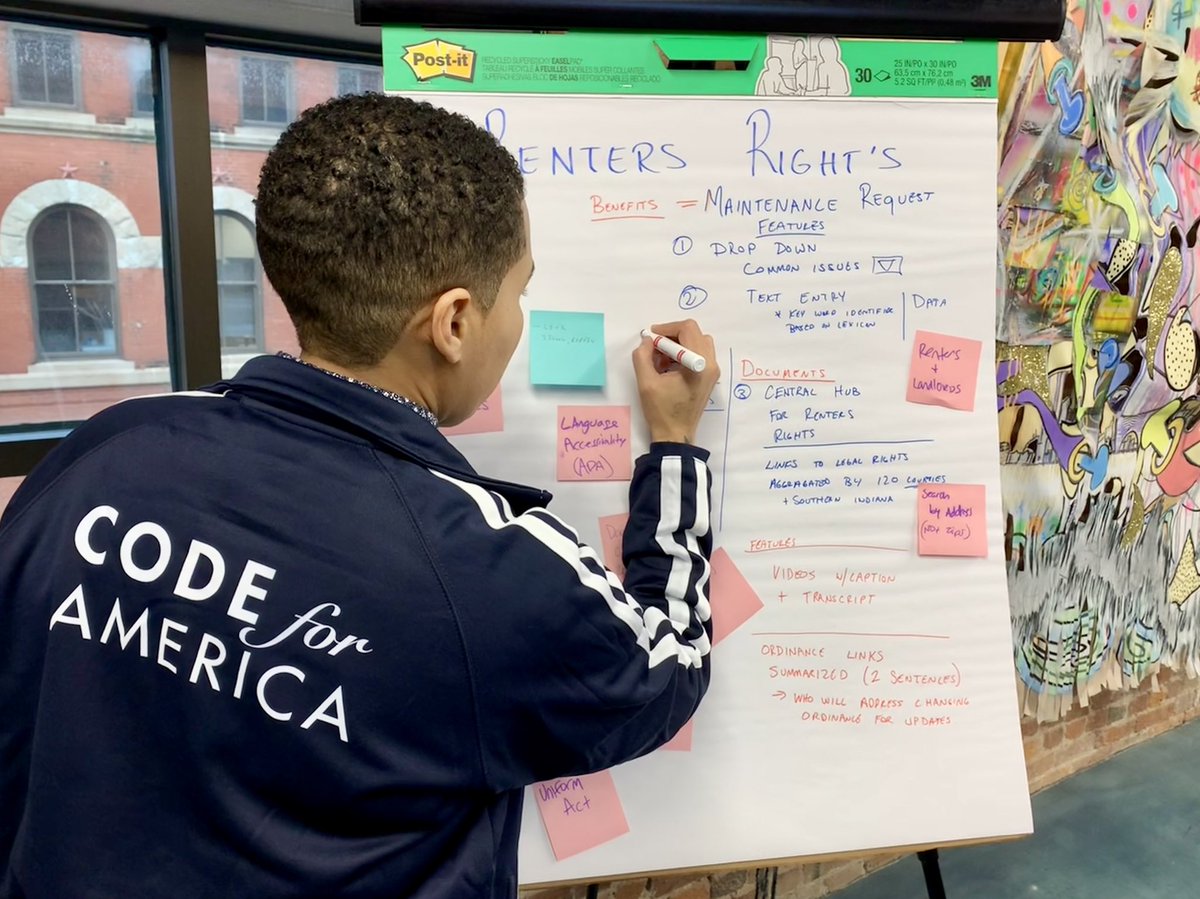 Post-it
RECYCLED SUPERSTICKY EASEL PAD
30
25 IN/PO X 30 IN/PO
63,5 cm x 76,2 cm
5.2 SQ FT/PP (0,48 m²)
3M
RENTERS RIGHT'S
BENEFITS = MAINTENANCE REQUEST
FEATURES
① DROP DOWN
COMMON ISSUES
② TEXT ENTRY
* KEY WORD IDENTIFIER
BASED ON LEXICON
DATA
DOCUMENTS
③ CENTRAL HUB
FOR RENTERS
RIGHTS
LINKS TO LEGAL RIGHTS
AGGRAGATED BY 120 COUNTIES
+ SOUTHERN INDIANA
FEATURES
VIDEOS W/CAPTION
+ TRANSCRIPT
ORDINANCE LINKS
SUMMARIZED (2 SENTENCES)
→ WHO WILL ADDRESS CHANGING
ORDINANCE FOR UPDATES
Renters
+
Landlords
Search
by Address
(not zips)
LAnguage
Accessibility
(ADA)
Uniform
Act
CODE for
AMERICA